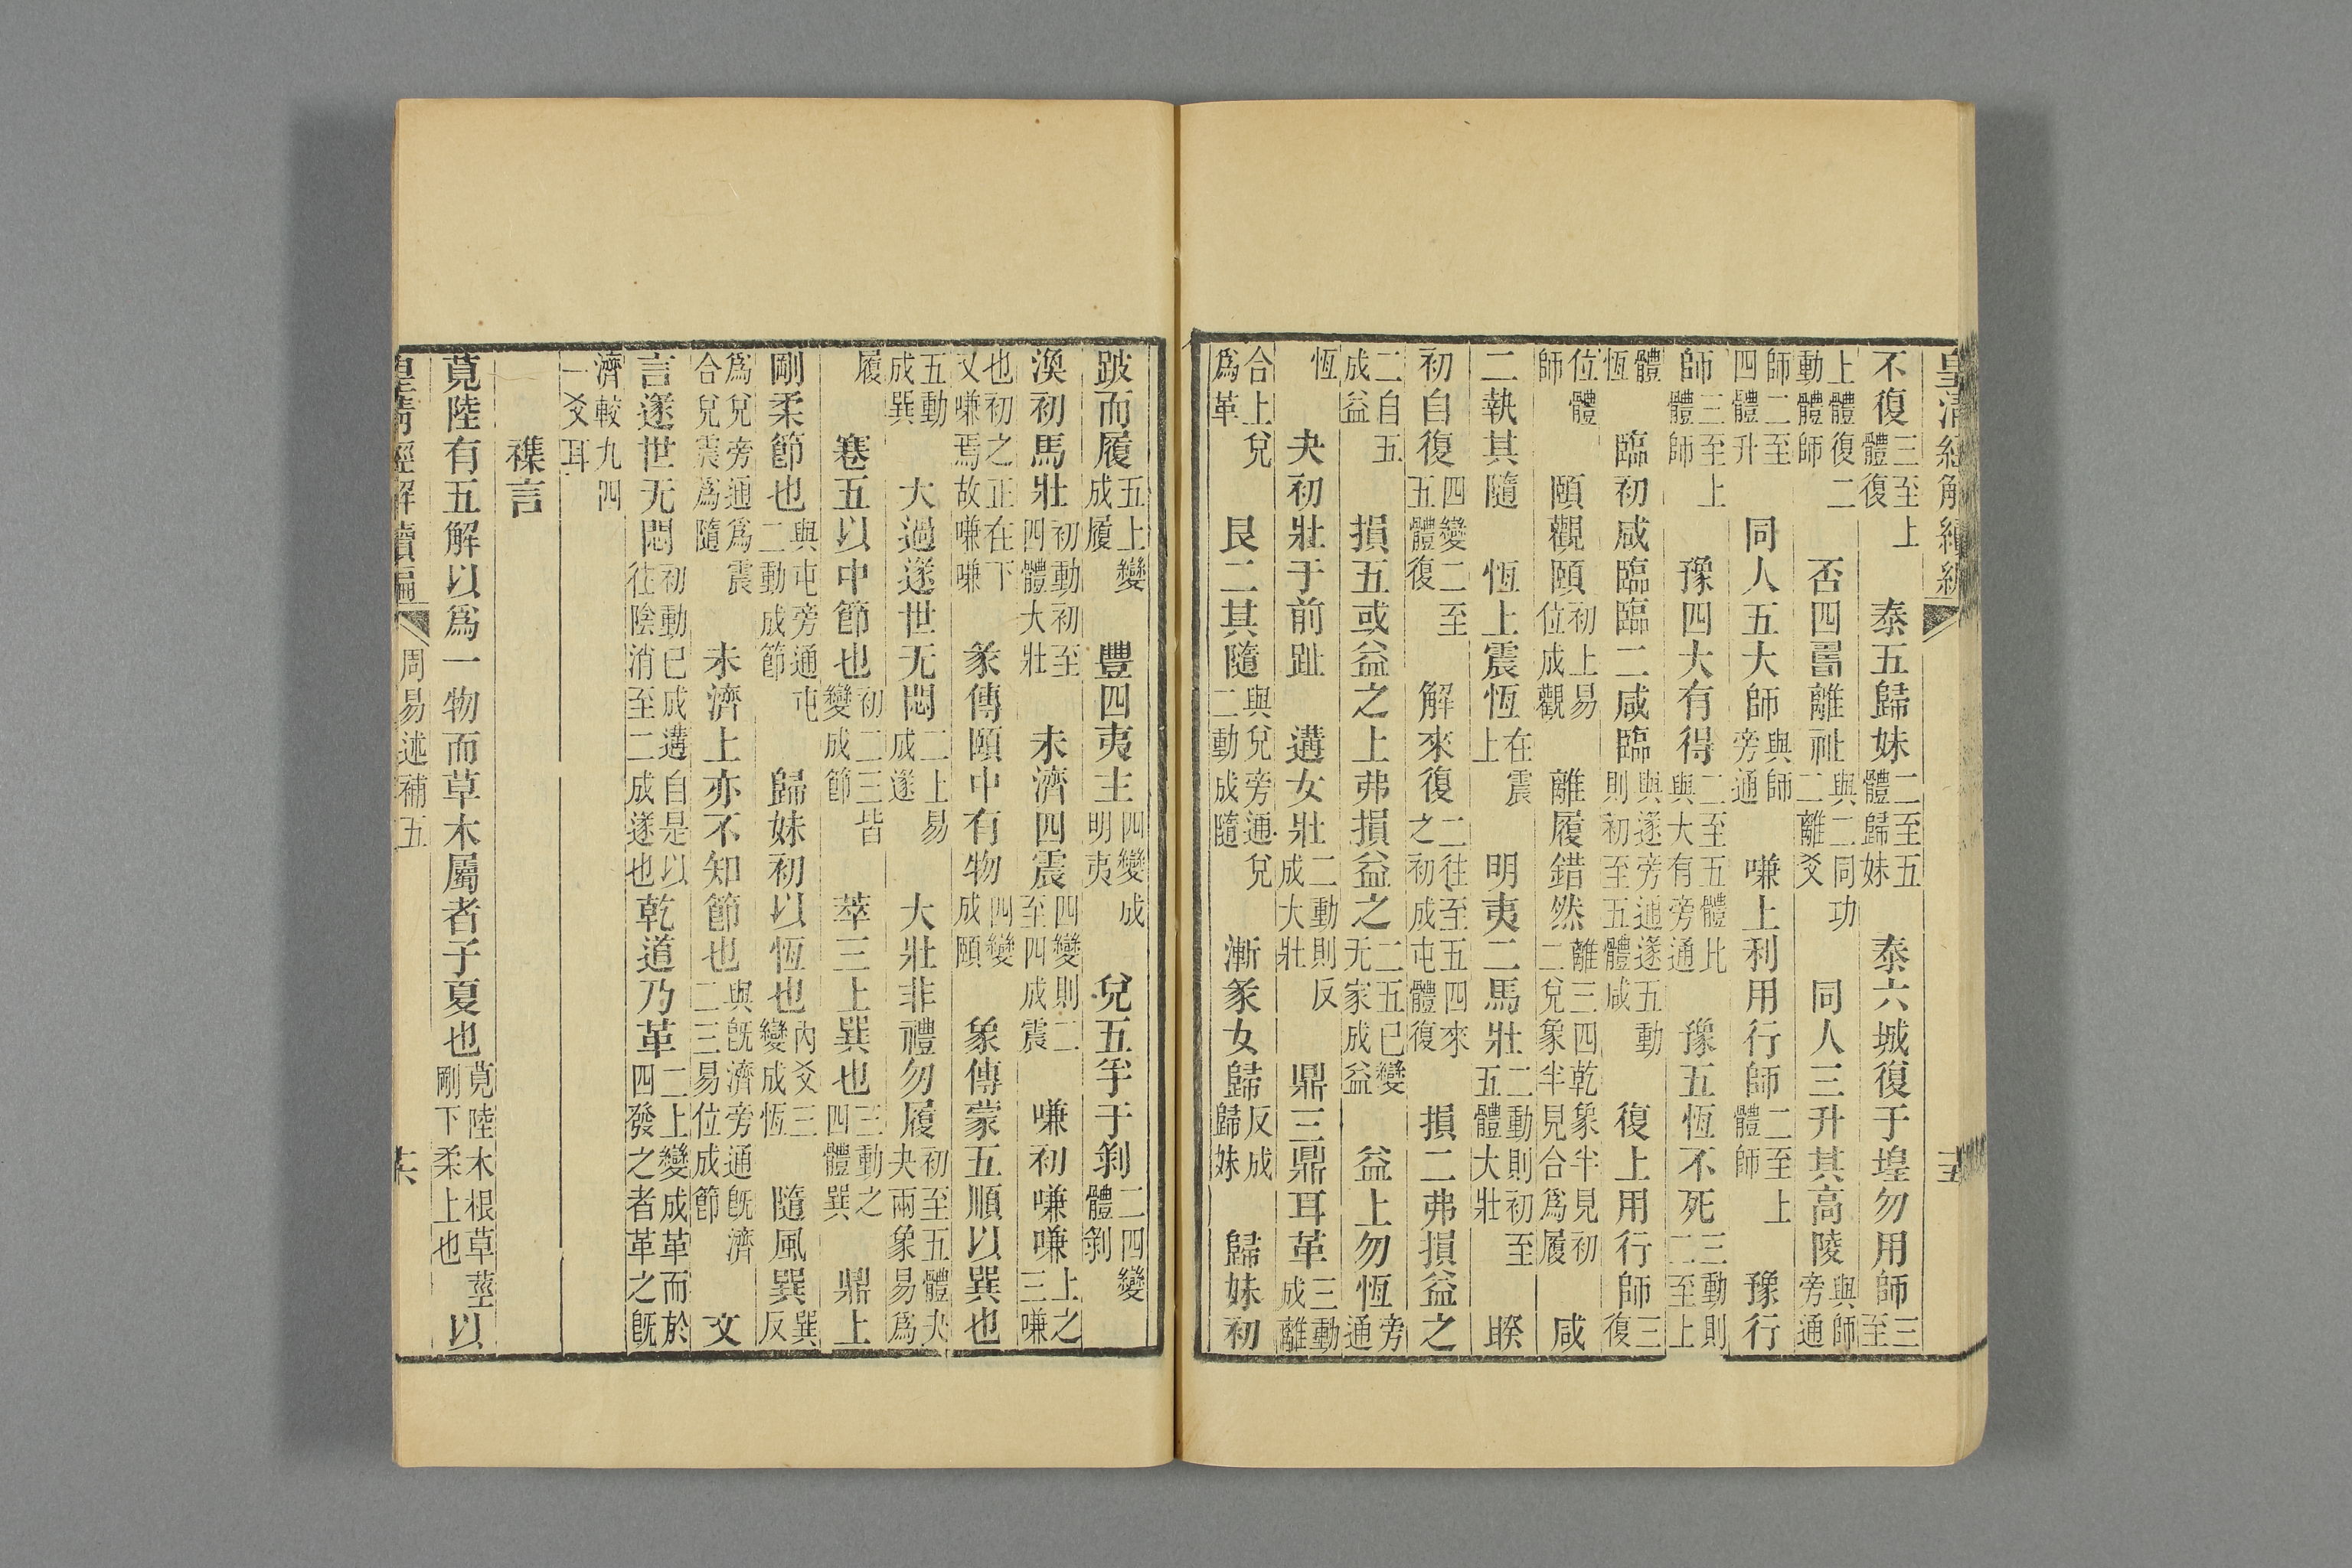 皇清經解續編
不復三至上體復 泰五歸妹二至五體歸妹 泰六城復于隍勿用師三至
上體復二動體師 否四疇離祉與二同功二離爻 同人三升其高陵與師旁通
師二至四體升 同人五大師與師旁通 嗛上利用行師二至上體師 豫行
師三至上體師 豫四大有得二至五體比與大有旁通 豫五恆不死三動則二至上
體恆 臨初咸臨臨二咸臨與遂旁通遂五動則初至五體咸 復上用行師三復
位體師 頤觀頤初上易位成觀 離履錯然離三四乾象半見初二兌象半見合爲履 咸
二執其隨 恆上震恆在震上 明夷二馬壯二動則初至五體大壯 睽
初自復四變二至五體復 解來復二往至五四來之初成屯體復 損二弗損益之
二自五成益 損五或益之上弗損益之二五已變无家成益 益上勿恆旁通
恆 夬初壯于前趾 遘女壯二動則反成大壯 鼎三鼎耳革三動成離
合上兌爲革 艮二其隨與兌旁通兌二動成隨 漸彖女歸反成歸妹 歸妹初
跛而履五上變成履 豐四夷主四變成明夷 兌五孚于剝二四變體剝
渙初馬壯初動初至四體大壯 未濟四震四變則二至四成震 嗛初嗛嗛上之三嗛
也初之正在下又嗛焉故嗛嗛 彖傳頤中有物四變成頤 象傳蒙五順以巽也
五動成巽 大過遂世无悶二上易成遂 大壯非禮勿履初至五體夬夬兩象易爲
履 蹇五以中節也初二三皆變成節 萃三上巽也三動之四體巽 鼎上
剛柔節也與屯旁通屯二動成節 歸妹初以恆也內爻三變成恆 隨風巽巽反
爲兌旁通爲震合兌震爲隨 未濟上亦不知節也與旣濟旁通旣濟二三易位成節 文
言遂世无悶初動已成遘自是以往陰消至二成遂也乾道乃革二上變成革而於四發之者革之旣
濟較九四一爻耳
襍言
莧陸有五解以爲一物而草木屬者子夏也莧陸木根草莖剛下柔上也 以
皇清經解續編 周易述補五